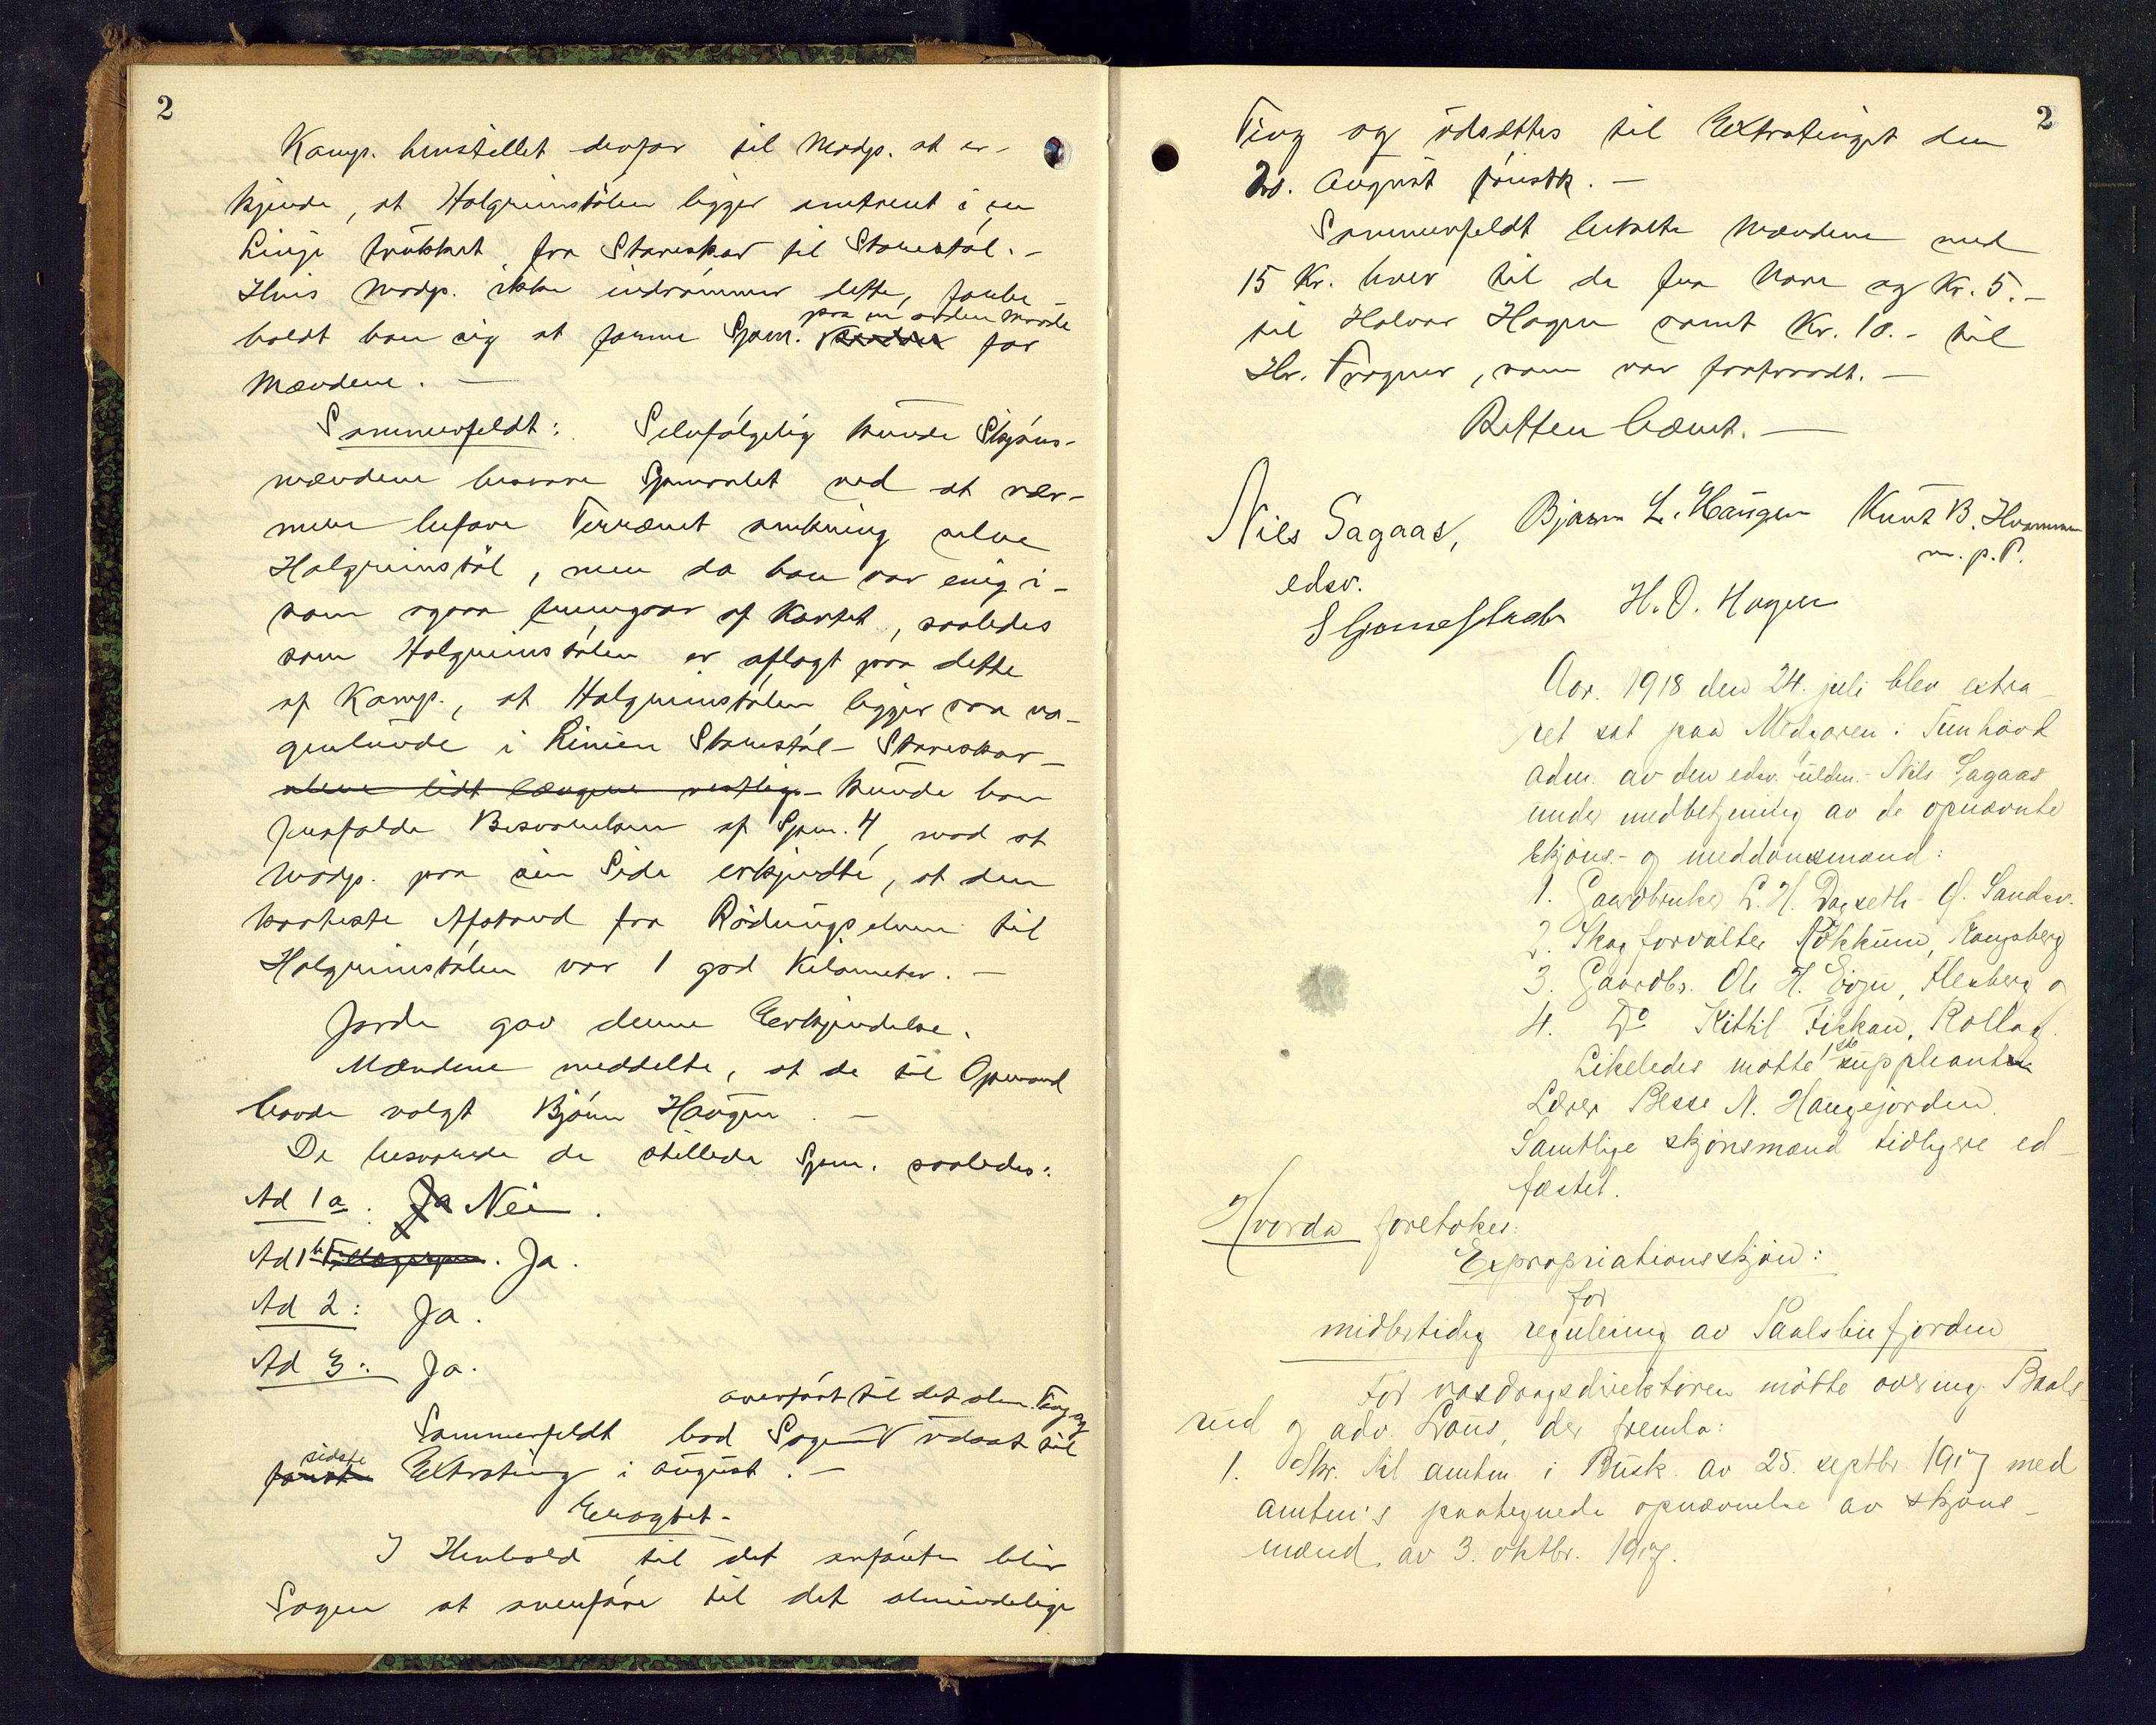 2
Komp. henstillet derfor til Modp. at er-
kjende, at Halgrimstølen ligger omtrent i en
Linje trukket fra Stareskar til Starestøl. -
Hvis Modp. ikke indrømmer dette, forbe-
paa en anden Maade
holdt han sig at forme Spm. for
Mændene. -
Sommerfeldt: Selvfølgelig kunde Skjøns-
mændene besvare Spmaalet ved at nær-
mere befare Terrænet omkring selve
Halgrimstøl, men da han var enig i-
som ogsaa fremgaar af Kartet, saaledes
som Halgrimstølen er aflagt paa dette
af Komp., at Halgrimstølen ligger saa no-
genlunde i Linien Starestøl - Stareskar -
alene lidt længere vestlig - kunde han
frafalde Besvarelsen af Spm. 4, mod at
Modp. paa sin Side erkjendte, at den
korteste Afstand fra Rødungselven til
Halgrimstølen var 1 god Kilometer. -
Jorde gav denne Erkjendelse.
Mændene meddelte, at de til Opmand
havde valgt Bjørn Haugen. -
De besvarede de stillede Spm. saaledes:
Ad 1 a. Ja Nei.
Ad 1 b. Ja.
Ad 2: Ja.
Ad 3: Ja.
overført til det alm. Ting og
Sommerfeldt bad Sagen udsat til
sidste
første Extrating i August. -
Eragtet -
I Henhold til det anførte blir
Sagen at overføre til det almindelige
2
Ting og udsættes til Extratinget den
August førstk. -
Sommerfeldt betalte Mændene med
15 Kr. hver til de fra Nore og Kr. 5. -
til Halvor Hagen samt Kr. 10. - til
Hr. Fragner, som var fratraadt. -
Retten hævet. -
Nils Sagaas, Bjørn L. Haugen Knut B. Hvammen
m. p. P.
edsv.
H. O. Hagen
Aar. 1918 den 24. juli blev extra-
ret sat paa Medgaren i Tunhovd
adm. av den edsv. fuldm. Nils Sagaas
under medbetjening av de opnævnte
skjøns- og meddomsmænd:
1. Gaardbruker L. H. Dagseth - Ø. Sandsv.
2. Skogforvalter Røkkum, Kongsberg
3. Gaardbr. Ole H. Evju, Flesberg og
4. Do Kittil Fikkan, Rollag.
Likeledes møtte 1ste suppleant
Lærer Besse N. Haugejorden.
Samtlige skjønsmænd tidligere ed-
fæstet.
Hvorda foretokes:
Expropriationsskjøn:
for
midlertidig regulering av Paalsbufjorden
For vasdragsdirektøren møtte overing. Baals-
rud og adv. Lous, der fremla:
1. Skr. til amtm. i Busk. av 25. septbr. 1917 med
amtm's paategnede opnævnelse av skjøns-
mænd, av 3. oktbr. 1917.